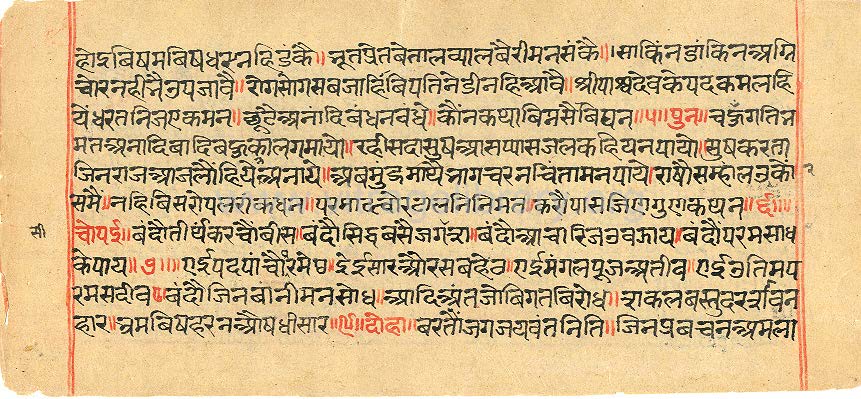 होइ बिषम बिषधर नहि डंकै॥ भूत प्रेत बेताल व्याल बैरी मन संकै॥ साकिन डांकिन अग्नि
चोर नही भै उपजावै॥ रोग सोग सब जाहिं बिपति नेडी नहि आवै॥ श्रीपार्श्वदेव के पदकमल हि
ये धरत निज एक मन॥ छूटै अनादि बंधन बंधे॥ कौंन कथा बिनसै बिघन॥५॥ पुन॥ चहूंगति भ्र
मत अनादि बादि बहु काल गमायो॥ रही सदा सुष आस प्यास जल कहि यन पायो॥ सुष करता
जिनराज आज लौं हिये न आये॥ अब मुझ माथै भाग चरन चिंतामन पाये॥ राषौ सम्हाल उर कों
समैं॥ नहि बिसरो पल रंक धन॥ परमाद चोर टालन निमित॥ करौ पास जिण गुण कथन॥६॥
चौपई॥ बंदौ तीर्थंकर चौबीस॥ बंदौ सिद्ध बसै जग सीस॥ बंदौ आचारिज उवझाय॥ बंदौ परम साध
के पाय॥७॥ एई पद पांचौं परमेष्ठ॥ एई सार और सब हेठ॥ एई मंगल पूज अतीव॥ एई उतिम प
रम सदीव॥८॥ बंदौ जिनबांनी मन सोध॥ आदि अंत जो बिगत बिरोध॥ सकल बस्तु दरसावन
हार॥ भ्रम बिषहरन औषधी सार॥९॥ दोहा॥ बरतौं जग जयवंत निति॥ जिन प्रबचन अमला